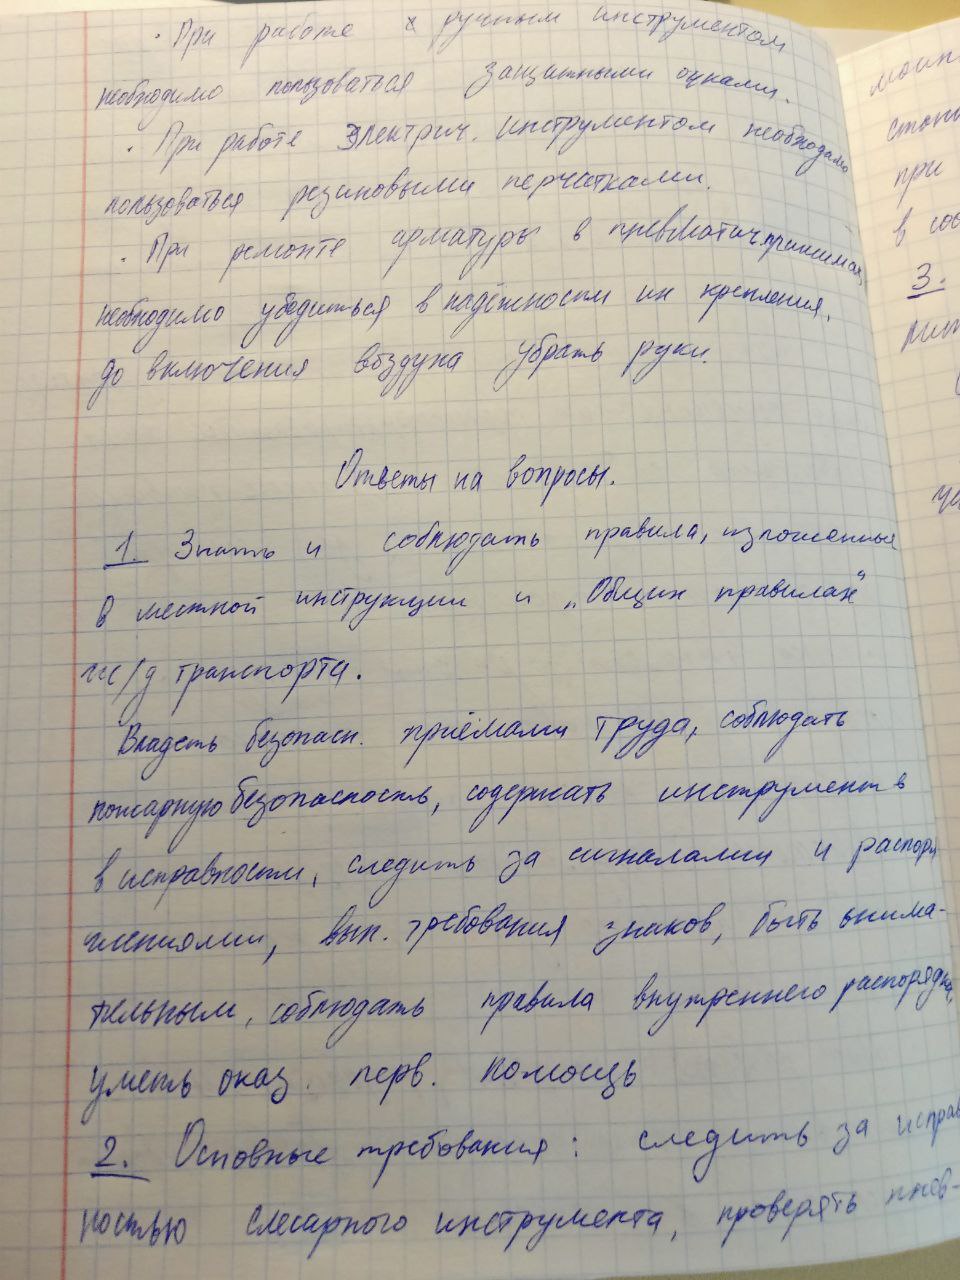 · При работе с ручным инструментом
необходимо пользоваться защитными очками.
· При работе электрич. инструментом необходимо
пользоваться резиновыми перчатками.
· При ремонте арматуры в пневматич.
необходимо убедиться в надёжности их крепления,
до включения воздуха убрать руки.
Ответы на вопросы.
1. Знать и соблюдать правила, изложенные
в местной инструкции и „Общих правилах“
ж/д транспорта.
Владеть безопасн. приёмами труда, соблюдать
пожарную безопасность, содержать инструмент в
в исправности, следить за сигналами и распоря
жениями, вып. требования знаков, быть внима-
тельным, соблюдать правила внутреннего распорядка,
уметь оказ. перв. помощь
2. Основные требования: следить за исправ
ностью слесарного инструмента, проверять пнев-
стан
при
в соо
3.